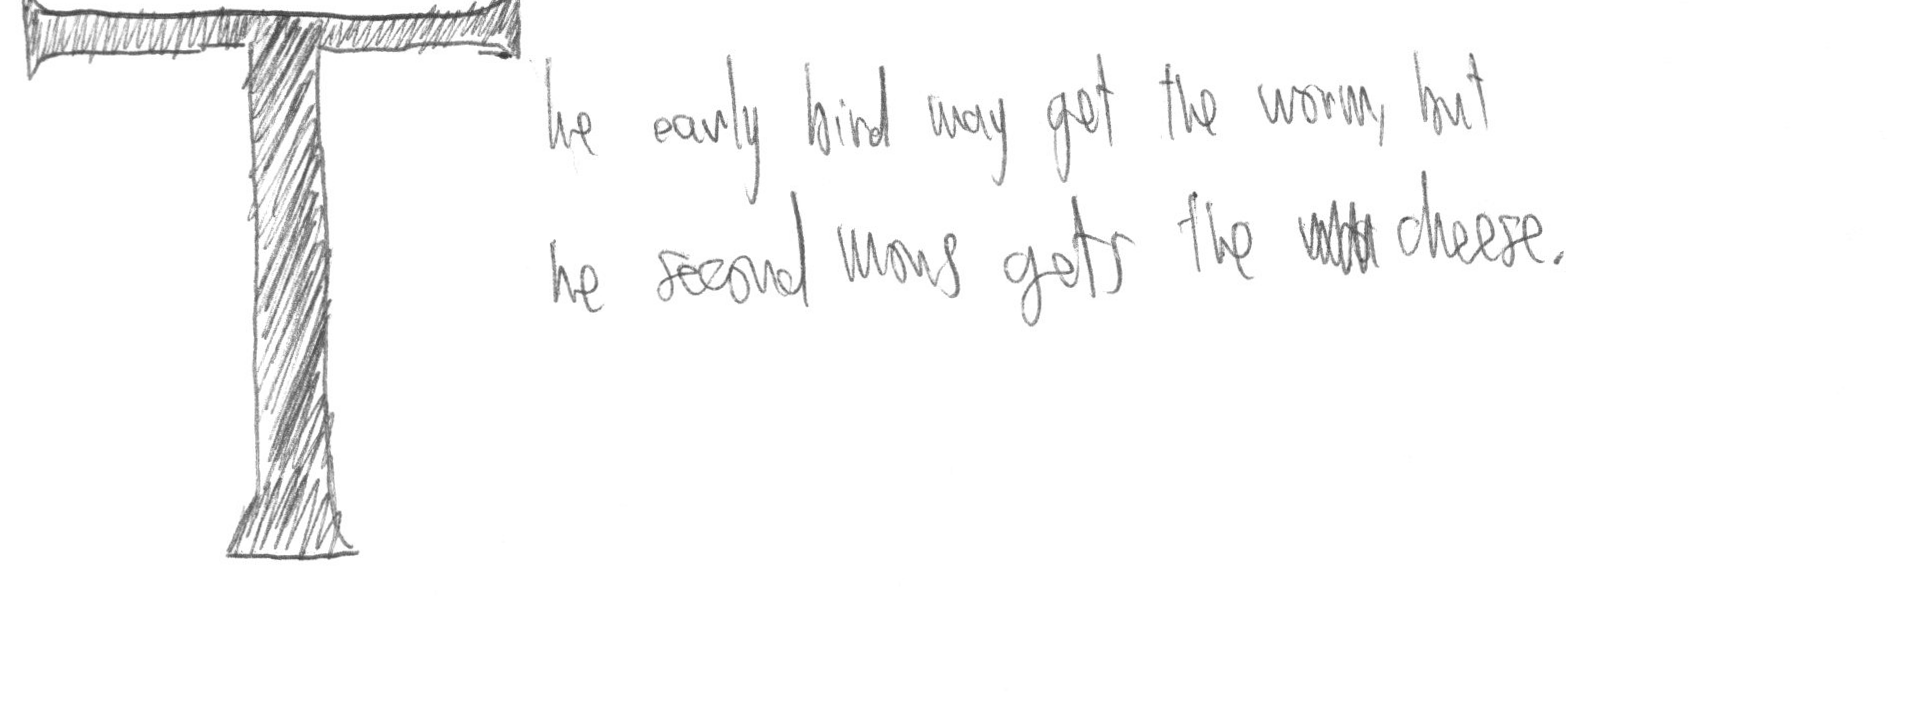 The early bird may get the worm, but
he second mous gets the cheese.